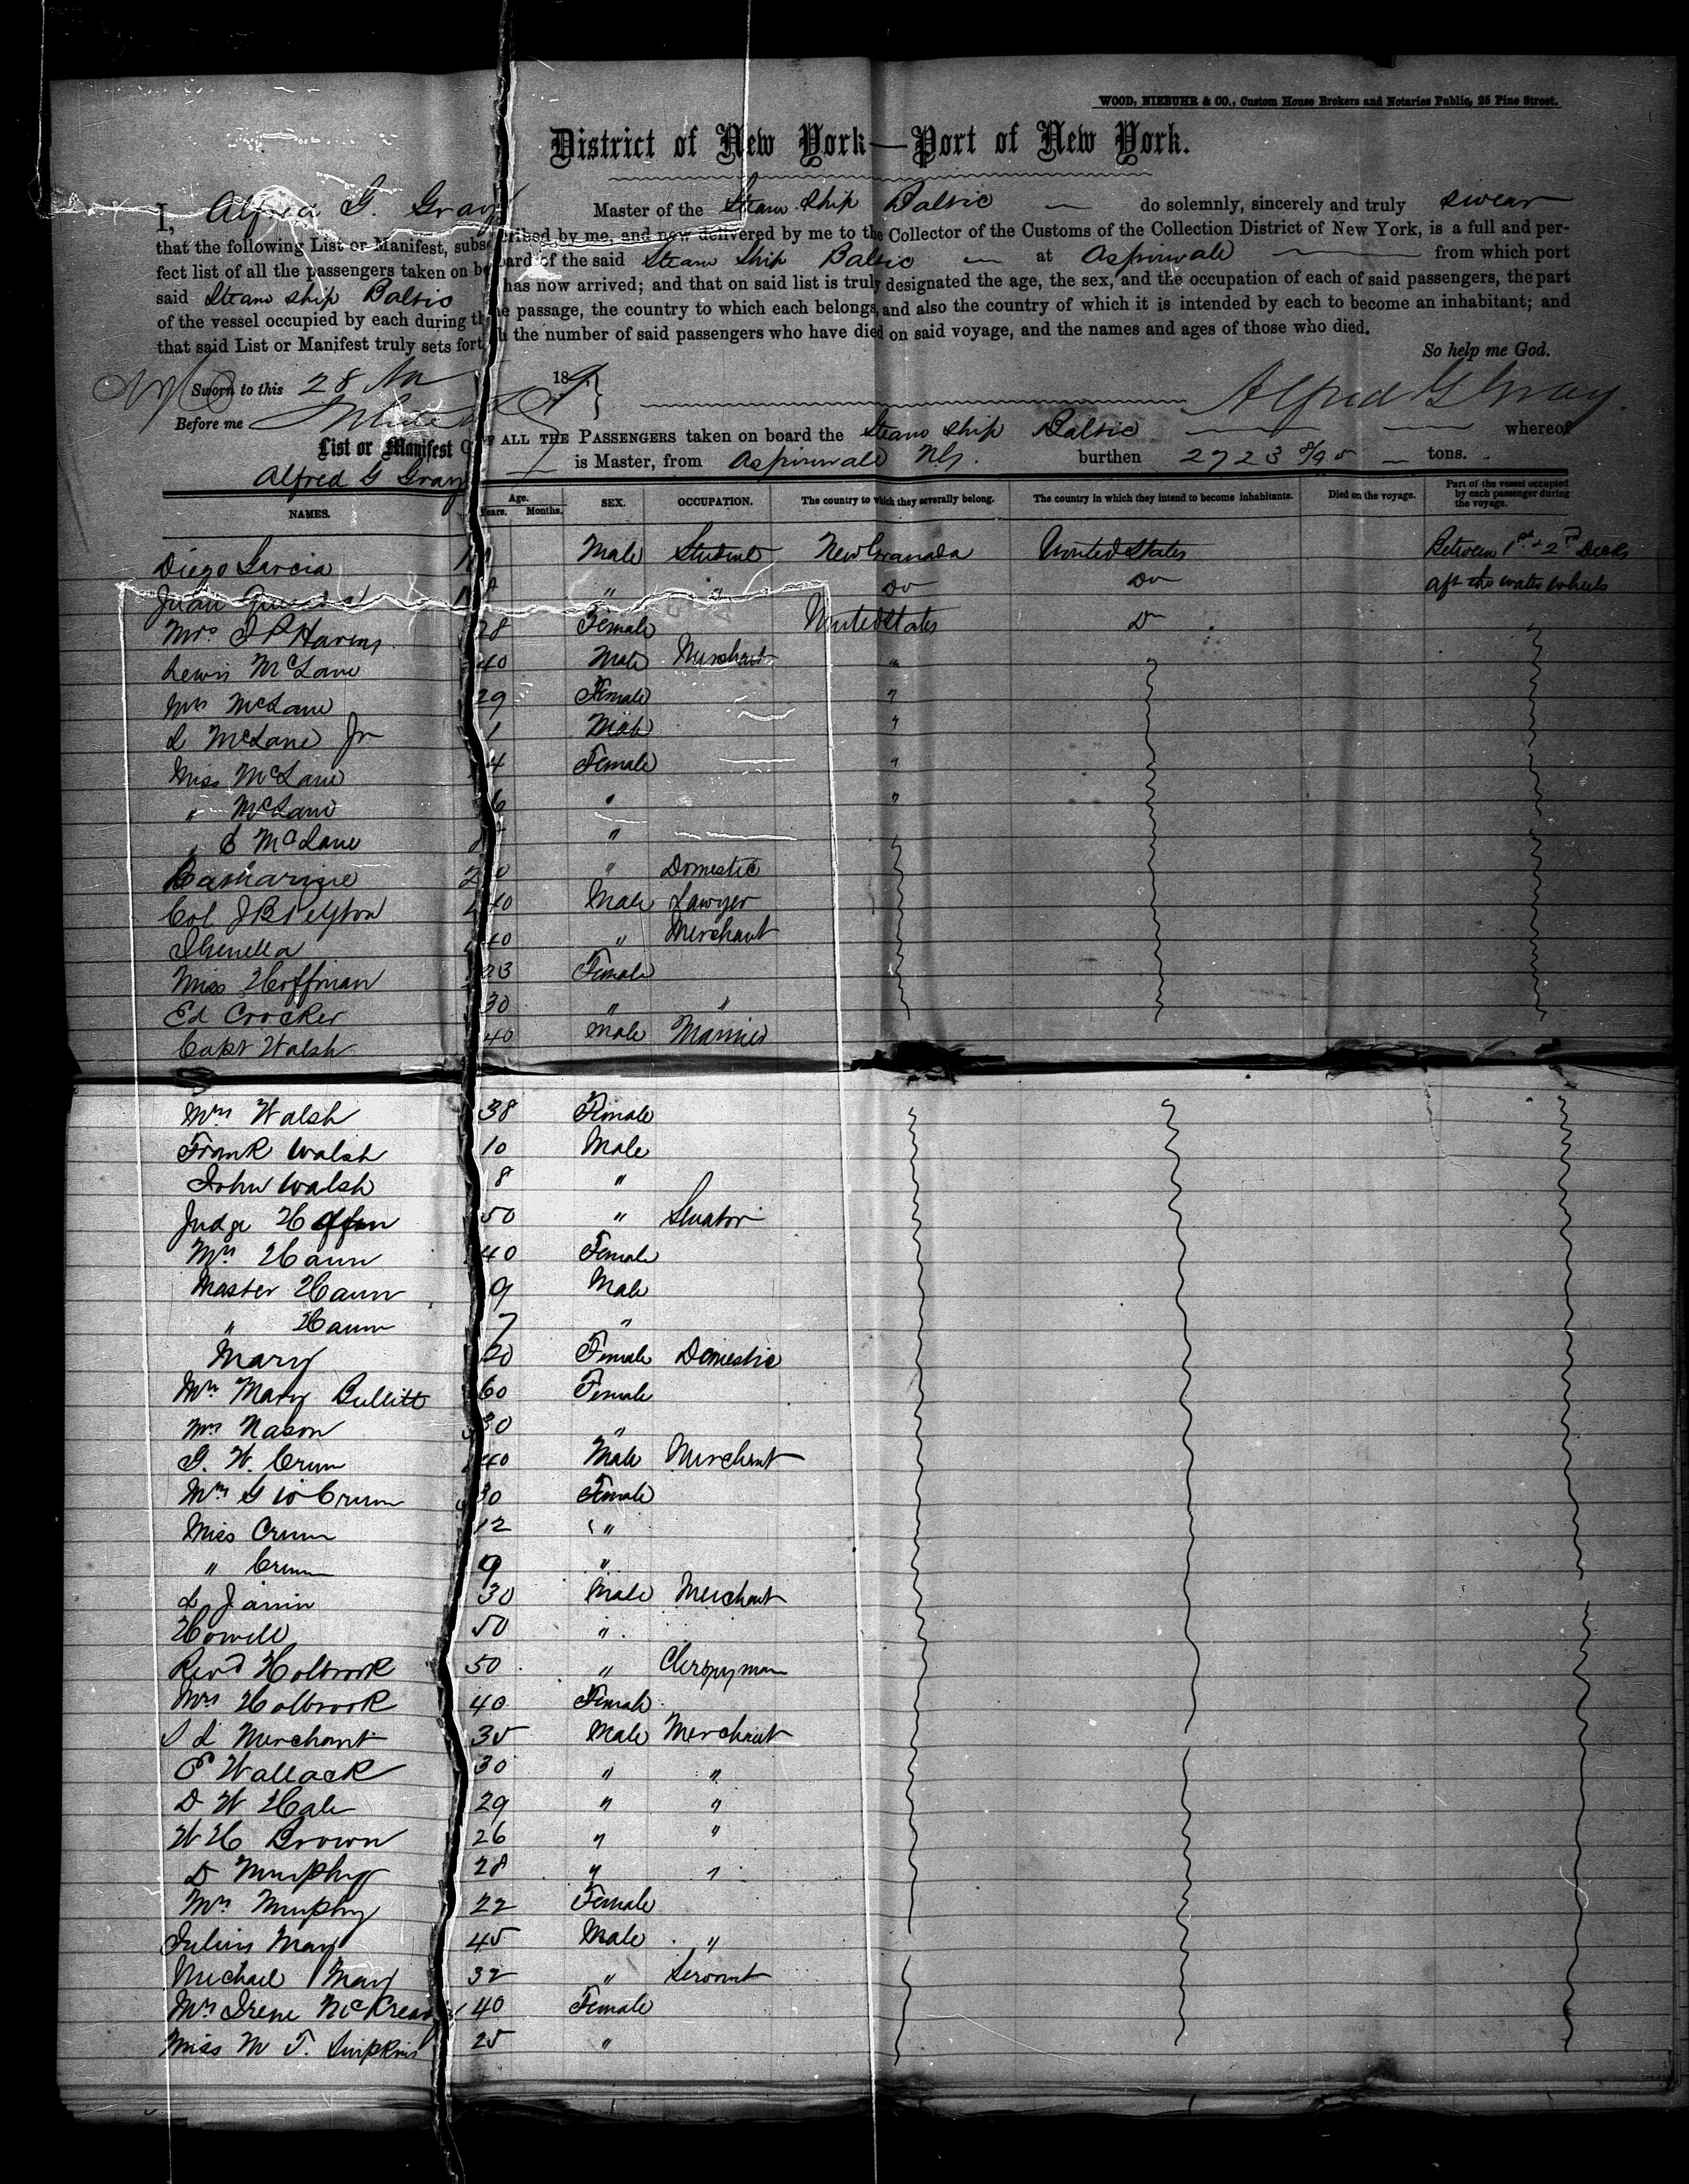 WOOD, NIEBUHR & CO., Custom House Brokers and Notaries Public, 25 Pine Street.
District of New York—Port of New York.
I, Alfred G. Gray Master of the Steam Ship Baltic do solemnly, sincerely and truly swear
that the following List or Manifest, subscribed by me, and now delivered by me to the Collector of the Customs of the Collection District of New York, is a full and per-
fect list of all the passengers taken on board of the said Steam Ship Baltic at Aspinwall from which port
said Steam Ship Baltic has now arrived; and that on said list is truly designated the age, the sex, and the occupation of each of said passengers, the part
of the vessel occupied by each during the passage, the country to which each belongs, and also the country of which it is intended by each to become an inhabitant; and
that said List or Manifest truly sets forth the number of said passengers who have died on said voyage, and the names and ages of those who died.
So help me God.
Sworn to this 28 18
Alfred G Gray
Before me
List or Manifest OF ALL THE PASSENGERS taken on board the Steam Ship Baltic whereof
Alfred G Gray is Master, from Aspinwall N.G. burthen 2723 8/95 tons.
NAMES. Age. Years. Months. SEX. OCCUPATION. The country to which they severally belong. The country in which they intend to become inhabitants. Died on the voyage. Part of the vessel occupied by each passenger during the voyage.
Diego Garcia Male Student New Granada United States Between 1st & 2nd Decks
Juan " " Do Do Aft the water wheels
Mrs Havens 28 Female United States Do
Lewis McLane 40 Male Merchant "
Mrs McLane 29 Female "
L McLane Jr 1 Male "
Miss McLane 4 Female "
" McLane 6 " "
" E McLane "
Catharine 20 " Domestic
Col J B 40 Male Lawyer
40 " Merchant
Miss Hoffman 23 Female
Ed Crocker 30 " "
Capt Walsh 40 Male
Mrs Walsh 38 Female
Frank Walsh 10 Male
John Walsh 8 "
Judge 50 " Senator
Mrs Haun 40 Female
Master Haun 9 Male
" Haun 7 "
Mary 20 Female Domestic
Mrs Mary Bullitt 60 Female
Mrs Nason 30 "
G. W. Crum 40 Male Merchant
Mrs G W Crum 30 Female
Miss Crum 12 "
" Crum 9 "
L Janin 30 Male Merchant
Howell 50 "
Revd Holbrook 50 " Clergyman
Mrs Holbrook 40 Female
S L Merchant 35 Male Merchant
E Wallack 30 " "
D W Hale 29 " "
W H Brown 26 " "
D Murphy 28 " "
Mrs Murphy 22 Female
Julius May 45 Male "
Michael May 32 " Servant
Mrs Irene McKready 40 Female
Miss M T. Simpkins 25 "